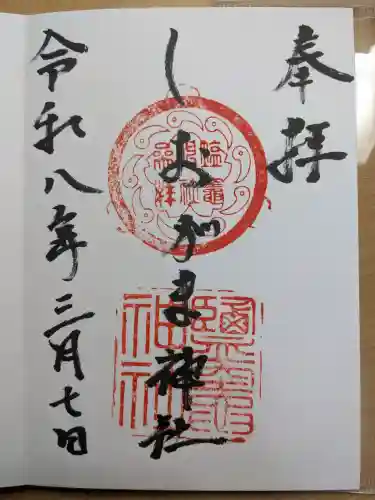 奉拝
しおがま神社
令和八年三月七日
鹽竈神社